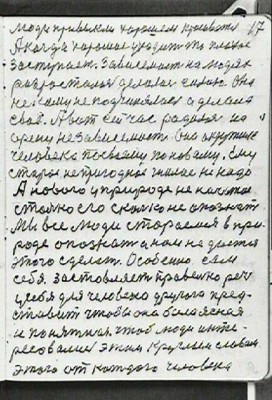 Люди привыкли хорошем пользоваться 17
А когда хорошее уходит то плохое
заступает. Зависимость на людях
разросталася делалася силою она
не кому не подчинялася а делала
своё. А вот сейчас родился на
арену независимость. Она окружает
человека по своему по новому. Ему
старое непригодное знание не надо
А нового у природе не початое
столько его сколько не опознать.
Мы все люди стараемся в при-
роде опознать а нам не удаётся
этого сделать. Особенно сам
себя. заставляет правильно речь
у себя для человека другого пред-
ставить чтобы она была ясная
и понятная. чтоб люди инте-
ресовались этим круглым словам
этого от каждого человека